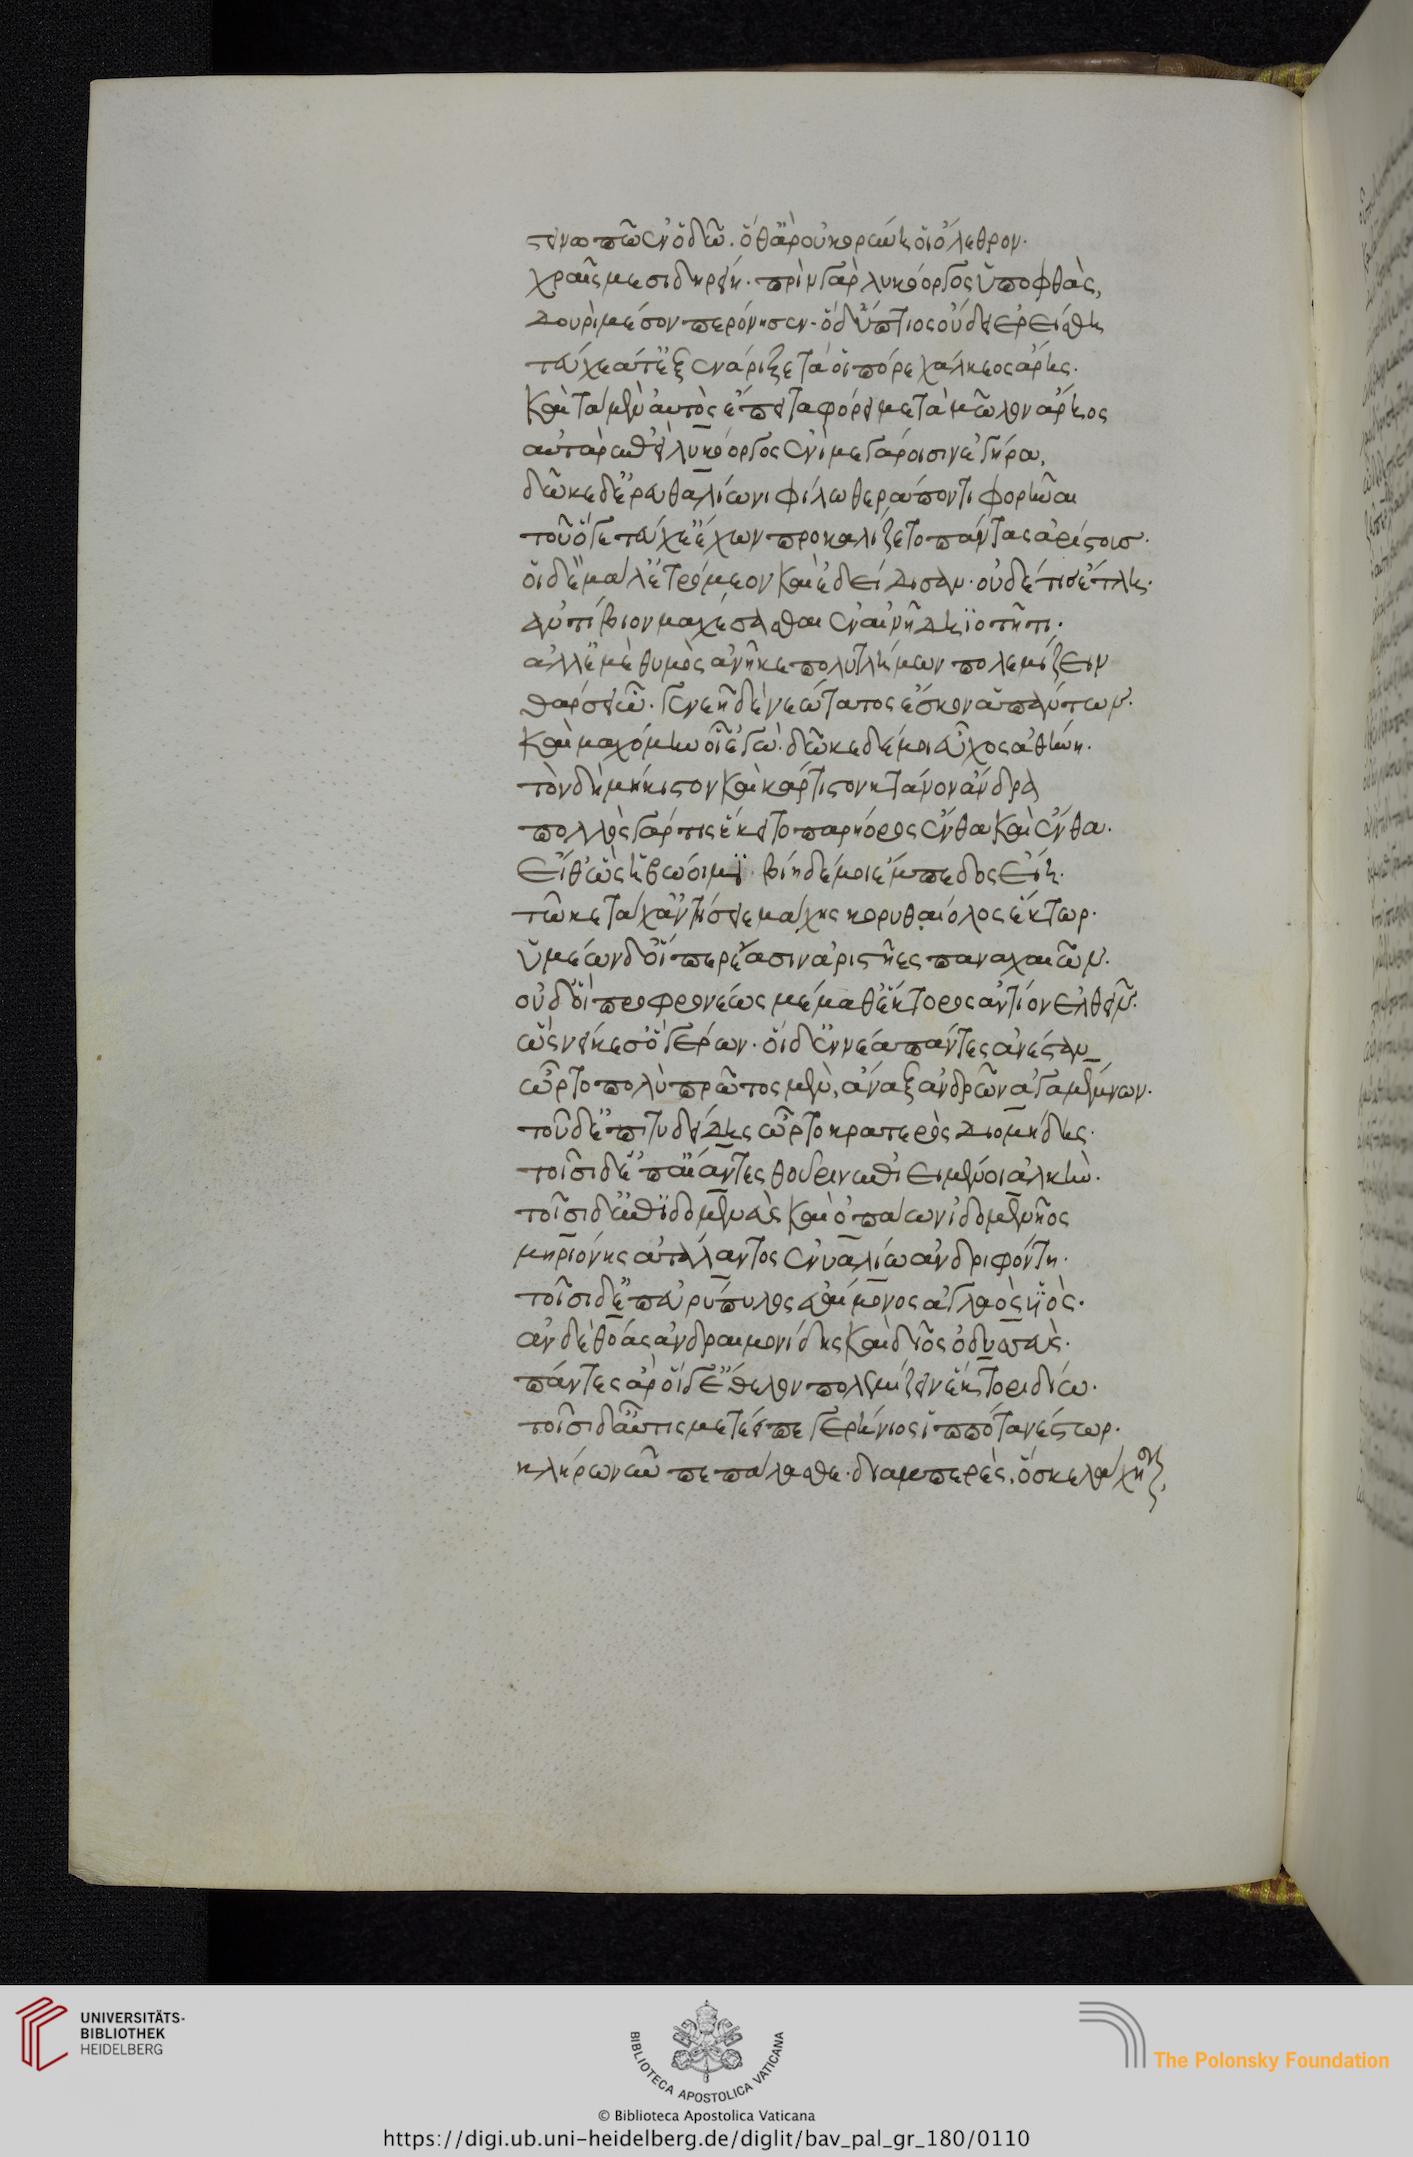 στεινωπῶ ἐν ὁδῶ. ὅθ' ἄρ οὐ κορύνη οἱ ὄλεθρον.
χραῖσμε σιδηρείη. πρὶν γὰρ λυκόοργος ὑποφθὰς,
δουρὶ μέσον περόνησεν. ὅδ' ὕπτιος οὔδει ἐρείσθη
τεύχεα τ' ἐξενάριξε τά οἱ πόρε χάλκεος ἄρης.
καὶ τὰ μὲν αὐτὸς ἔπειτα φόρει μετὰ μῶλον ἄρηος
αὐτὰρ ἐπεὶ λυκόοργος ἐνὶ μεγάροισιν ἐγήρα,
δῶκε δ' ἐρευθαλίωνι φίλω θεράποντι φορῆναι
τοῦ ὅγε τεύχε' ἔχων προκαλίζετο πάντας ἀρίστους.
οἱ δὲ μάλ' ἐτρόμεον καὶ ἐδείδισαν. οὐδέ τις ἔτλη.
ἀντίβιον μαχέσασθαι ἐν αἰνῆ δηϊοτῆτι.
ἀλλ' ἐμὲ θυμὸς ἀνῆκε πολυτλήμων πολεμίζειν
θάρσει ὧ. γενεῆ δὲ νεώτατος ἔσκον ἁπάντων.
καὶ μαχόμην οἷ ἐγώ. δῶκε δέ μοι εὖχος ἀθήνη.
τὸν δὴ μήκιστον καὶ κάρτιστον κτάνον ἄνδρα
πολλὸς γάρ τις ἔκειτο παρήορος ἔνθα καὶ ἔνθα.
εἴθ' ὣς ἡβώοιμι. βίη δέ μοι ἔμπεδος εἴη.
τῶ κε τάχ' ἀντήσειε μάχης κορυθαίολος ἕκτωρ.
ὑμέων δ' οἵπερ ἔασιν ἀριστῆες παναχαιῶν.
οὐδ' οἳ προφρονέως μέμαθ' ἕκτορος ἀντίον ἐλθεῖν.
ὣς νείκεσ' ὁ γέρων. οἱ δ' ἐννέα πάντες ἀνέσταν
ὦρτο πολὺ πρῶτος μὲν, ἄναξ ἀνδρῶν ἀγαμέμνων.
τοῦ δ' ἐπὶ τυδείδης ὦρτο κρατερὸς διομήδης.
τοῖσι δ' ἐπ' αἴαντες θοῦριν ἐπιειμένοι ἀλκήν.
τοῖσι δ' ἐπ' ἰδομενεὺς καὶ ὀπάων ἰδομενῆος
μηριόνης ἀτάλαντος ἐνυαλίω ἀνδριφόντη.
τοῖσι δ' ἐπ' εὐρύπυλος εὐαίμονος ἀγλαὸς υἱός.
ἂν δὲ θόας ἀνδραιμονίδης καὶ δῖος ὀδυσσεὺς.
πάντες ἄρ' οἵγ' ἔθελον πολεμίζειν ἕκτορι δίω.
τοῖσι δ' αὖτις μετέειπε γερήνιος ἱππότα νέστωρ.
κλήρω νῦν πεπάλασθε. διαμπερὲς, ὅς κε λάχησιν
UNIVERSITÄTS-
BIBLIOTHEK
HEIDELBERG
BIBLIOTECA APOSTOLICA VATICANA
The Polonsky Foundation
© Biblioteca Apostolica Vaticana
https://digi.ub.uni-heidelberg.de/diglit/bav_pal_gr_180/0110